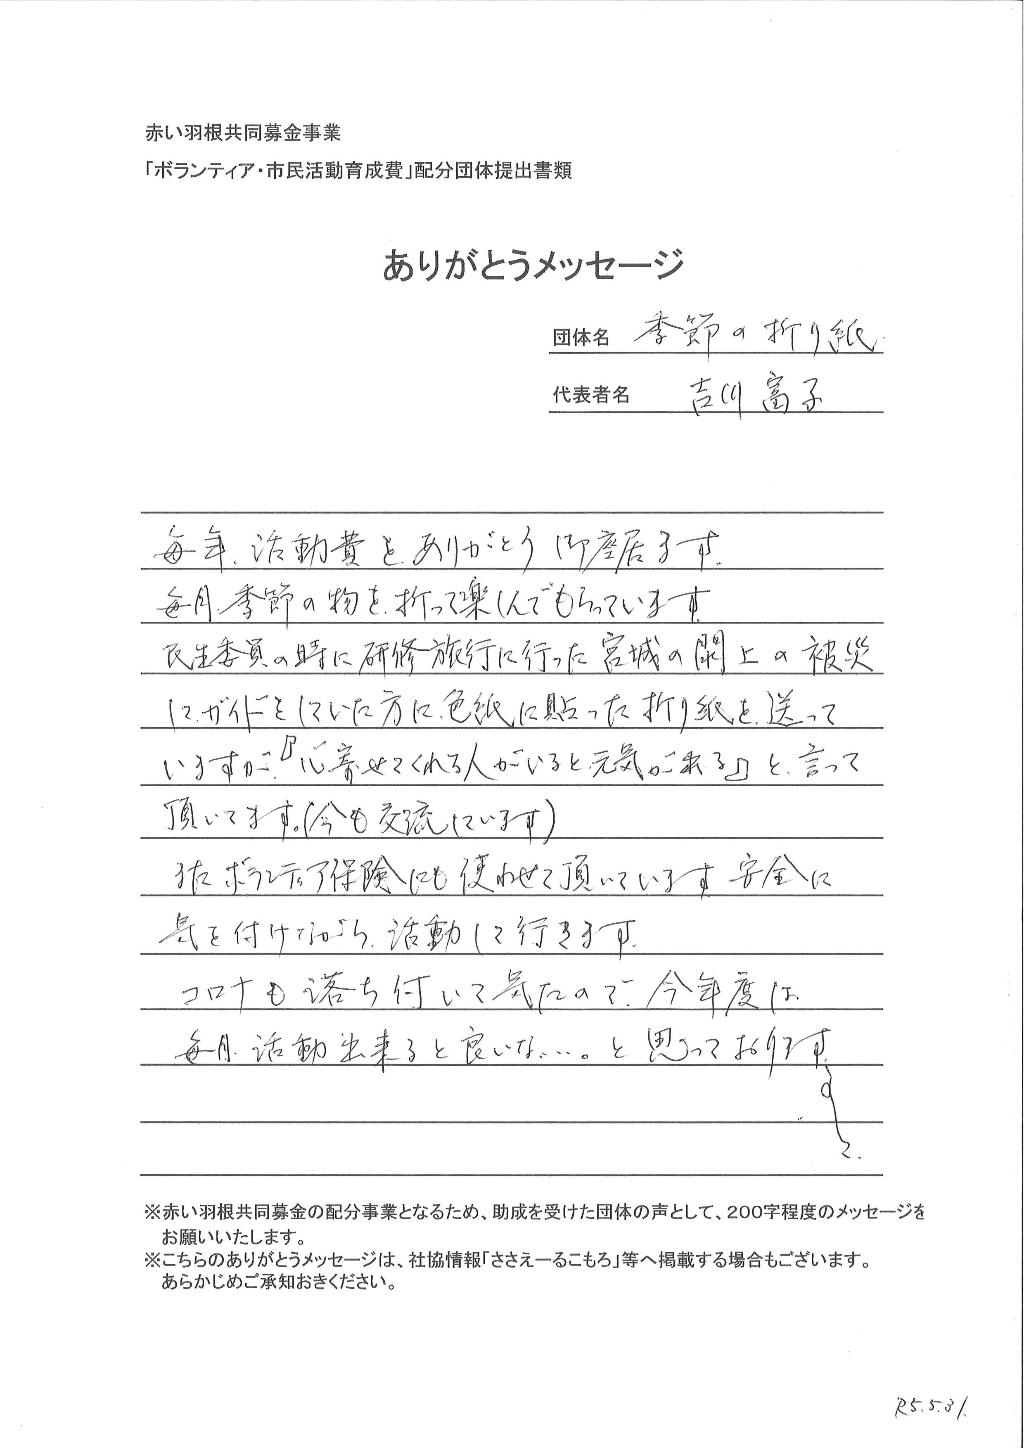 赤い羽根共同募金事業
「ボランティア・市民活動育成費」配分団体提出書類
ありがとうメッセージ
団体名 季節の折り紙
代表者名 吉川富子
毎年、活動費を、ありがとう御座居ます。
毎月、季節の物を、折って楽しんでもらっています。
民生委員の時に研修旅行に行った宮城の閖上の被災
して、ガイドをしていた方に、色紙に貼った折り紙を、送って
いますが、『心寄せてくれる人がいると、元気が来る』と、言って
頂いてます。(今も交流しています)
またボランティア保険にも使わせて頂いています 安全に
気を付けながら、活動して行きます。
コロナも落ち付いて気たので、今年度は、
毎月、活動出来ると良いな…。と思っております。
※赤い羽根共同募金の配分事業となるため、助成を受けた団体の声として、200字程度のメッセージを
お願いいたします。
※こちらのありがとうメッセージは、社協情報「ささえーるこもろ」等へ掲載する場合もございます。
あらかじめご承知おきください。
R5.5.31.